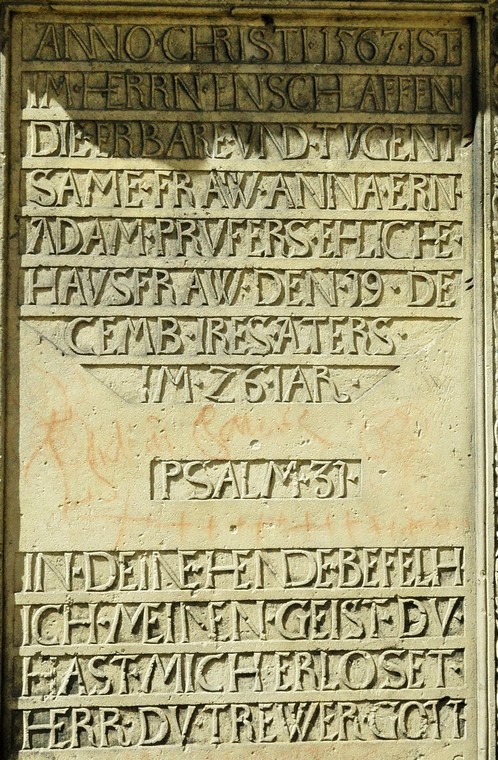 ANNO·CHRISTI·1567·IST·
IM·HERRN·ENSCHLAFFEN·
DIE·ERBARE·VND·TVGENT
SAME·FRAW·ANNA·ERN·
ADAM·PRVFERS·EHLICHE·
HAVSFRAW·DEN·19·DE
CEMB·IRES·ATERS·
IM·26·IAR·
PSALM·31·
IN·DEINE·HENDE·BEFELH
ICH·MEINEN·GEIST·DV·
HAST·MICH·ERLOSET·
HERR·DV·TREWER·GOTT